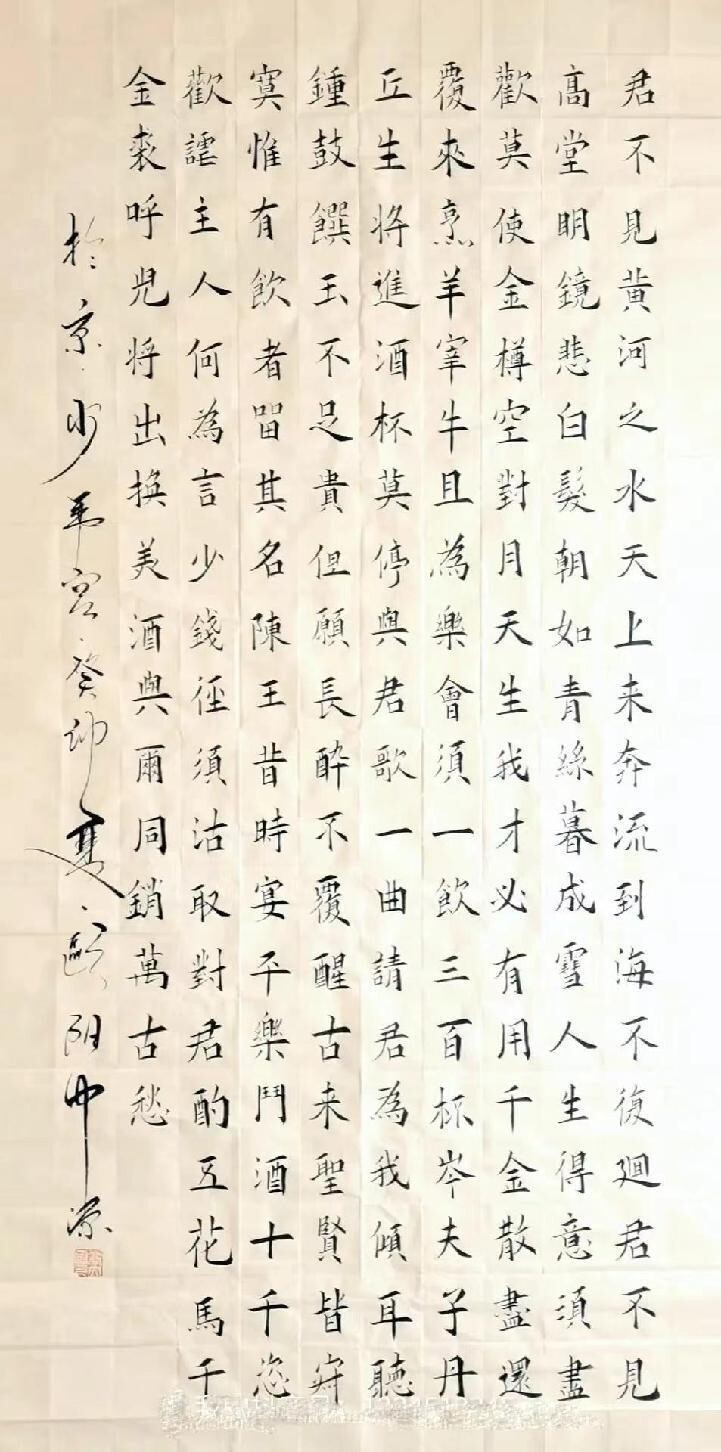 君不見黄河之水天上来奔流到海不復迴君不見
高堂明鏡悲白髮朝如青絲暮成雪人生得意須盡
歡莫使金樽空對月天生我才必有用千金散盡還
覆來烹羊宰牛且為樂會須一飲三百杯岑夫子丹
丘生将進酒杯莫停與君歌一曲請君為我傾耳聽
鍾鼓饌玉不足貴但願長醉不覆醒古来聖賢皆寂
寞惟有飲者畱其名陳王昔時宴平樂鬥酒十千恣
歡謔主人何為言少錢徑須沽取對君酌五花馬千
金裘呼兒将出換美酒與爾同銷萬古愁
於京癸卯夏歐阳中源